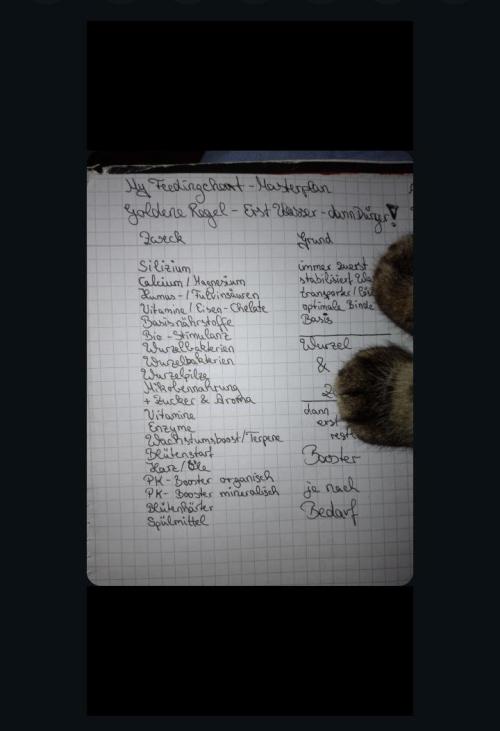 My Feedingchart - Masterplan
Goldene Regel - Erst Wasser - dann Dünger!
Zweck Grund
Silizium immer zuerst
Calcium / Magnesium stabilisiert Wa
Humus- / Fulvinsäuren transporter /
Vitamine / Eisen - Chelate optimale Binde
Basisnährstoffe Basis
Bio - Stimulanz
Wurzelbakterien Wurzel
Wurzelbakterien &
Wurzelpilze
Mikobennahrung
+ Zucker & Aroma
Vitamine dann
Enzyme erst
Wachstumsboost / Terpene rest
Blütenstart Booster
Harz / Öle
PK - Booster organisch
PK - Booster mineralisch je nach
Blütenhärter Bedarf
Spülmittel